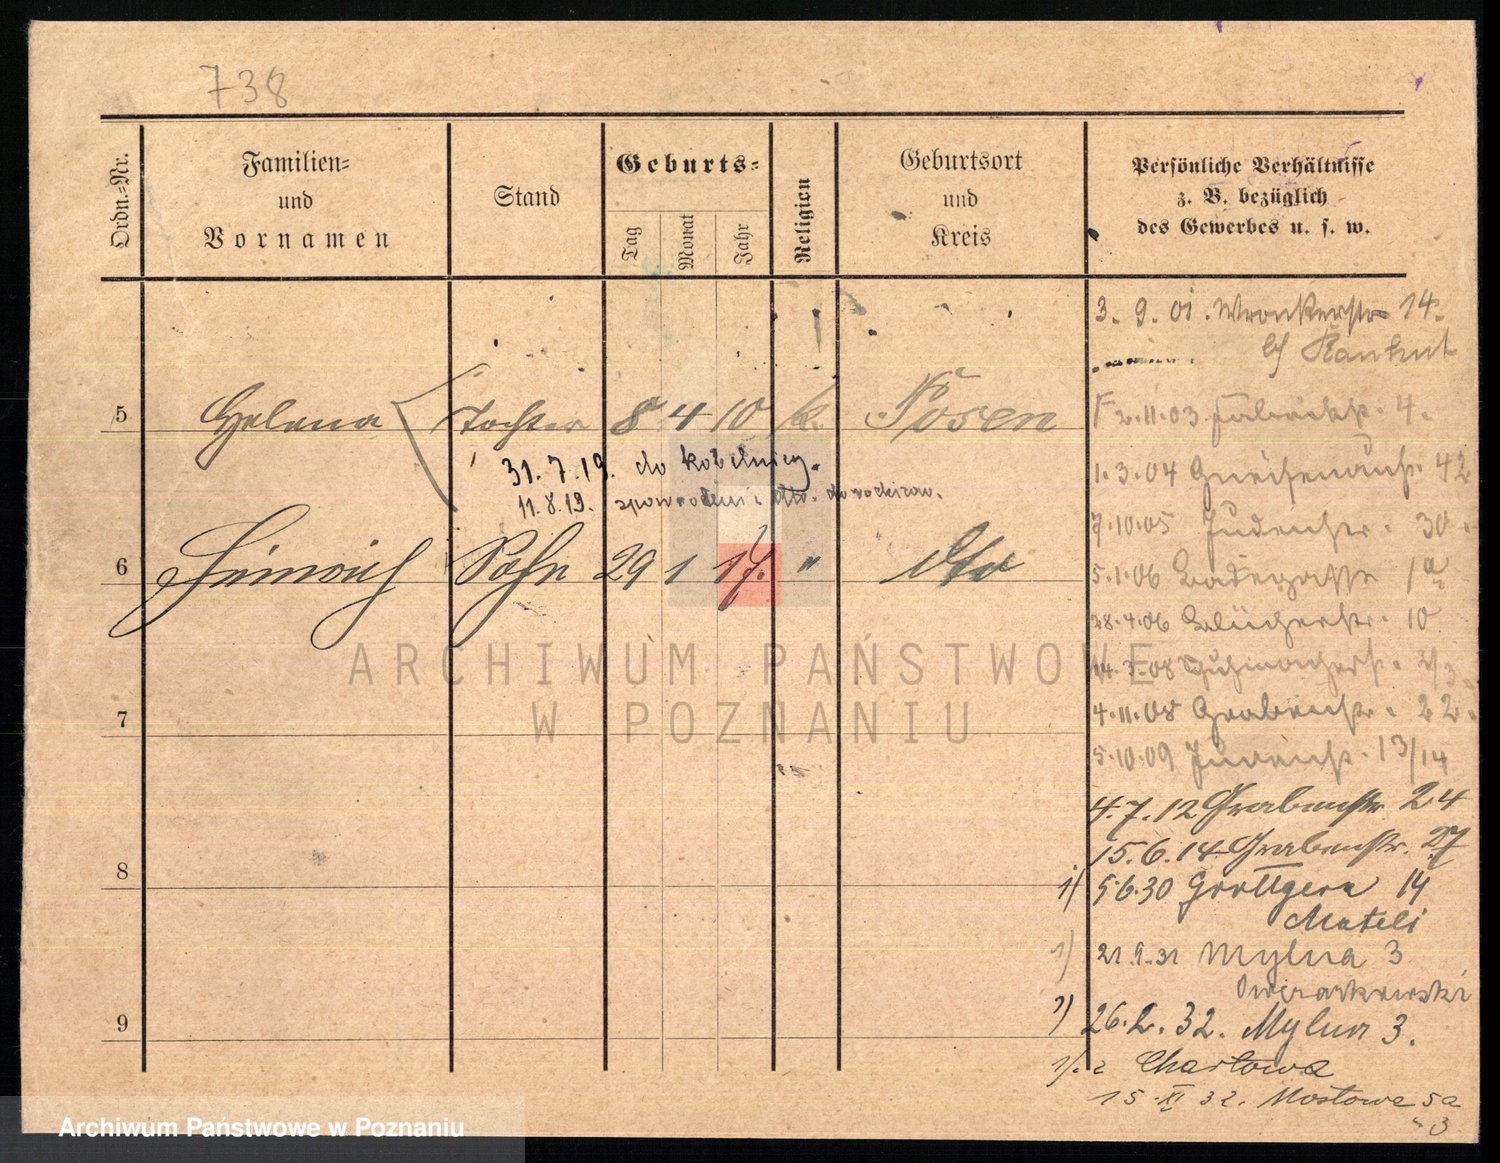 738
Ordn.-Nr.
Familien-
und
Vornamen
Stand
Geburts-
Tag
Monat
Jahr
Religion
Geburtsort
und
Kreis
Persönliche Verhältnisse
z. B. bezüglich
des Gewerbes u. s. w.
3. 9. 01. Wronkerstr 14.
5 Helena Tochter 8 4 10 k. Posen
31. 7. 19. do
11. 8. 19.
6 Heinrich Sohn 29 1 17. " dto
7
8
9
2.11.03. 4.
1.3.04 Gneisenaustr. 42
7.10.05 Judenstr. 30
5.1.06 1a
28.4.06 Blücherstr. 10
4.11.08 Grabenstr. 22.
5.10.09 Judenstr. 13/14
4.7.12 Grabenstr. 24
15.6.14 Grabenstr. 27
1) 5.6.30 Grottgera 14
Mateli
1) 21.9.31 Mylna 3
Owczarkowski
1) 26.2.32. Mylna 3.
Chartowa
15.XI 32. Mostowa 5a
3
ARCHIWUM PAŃSTWOWE
W POZNANIU
Archiwum Państwowe w Poznaniu